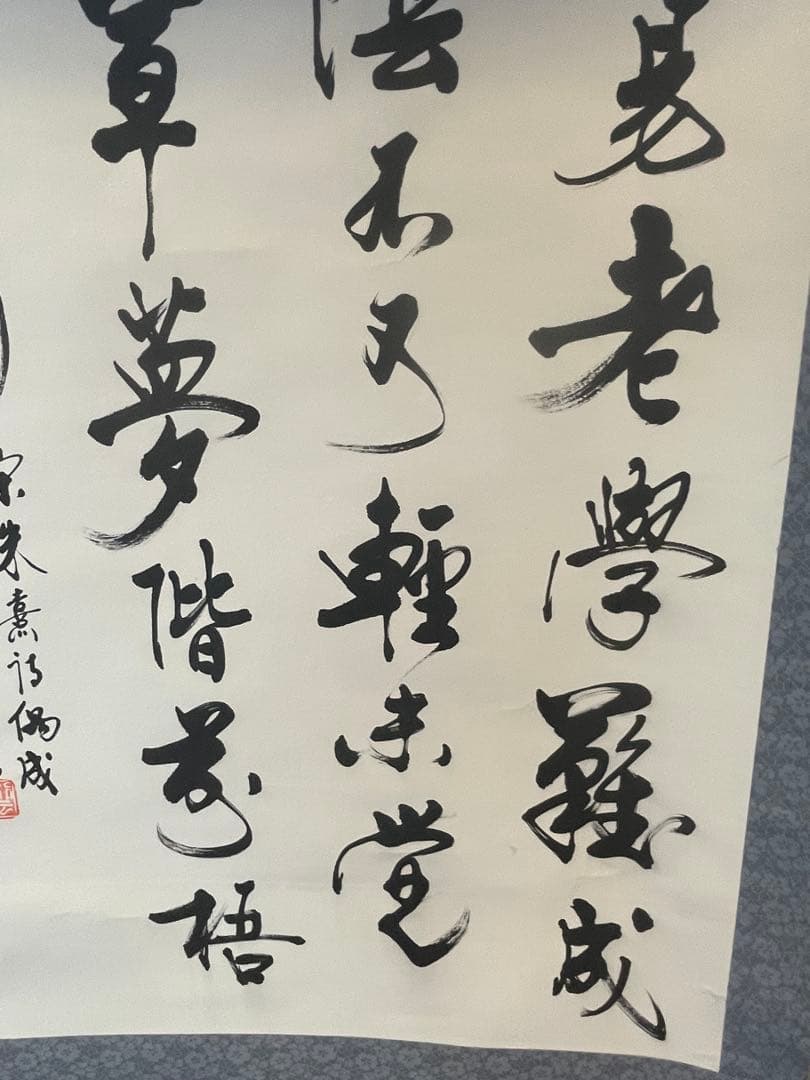 易老學難成
陰不可輕未覺
草夢階前梧
宋朱熹詩偶成